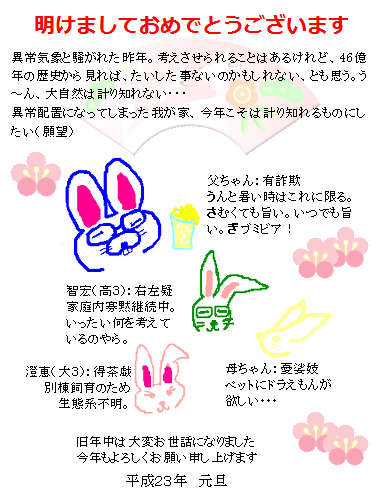 明けましておめでとうございます
異常気象と騒がれた昨年。考えさせられることはあるけれど、46億
年の歴史から見れば、たいした事ないのかもしれない、とも思う。う
～ん、大自然は計り知れない・・・
異常配置になってしまった我が家、今年こそは計り知れるものにし
たい(願望)
父ちゃん：有詐欺
うんと暑い時はこれに限る。
さむくても旨い。いつでも旨
い。ぎブミビア！
智宏(高3)：右左疑
家庭内寡黙継続中。
いったい何を考えて
いるのやら。
澄恵(大3)：得茶戯
別棟飼育のため
生態系不明。
母ちゃん：憂裟妓
ペットにドラえもんが
欲しい・・・
旧年中は大変お世話になりました
今年もよろしくお願い申し上げます
平成23年　元旦